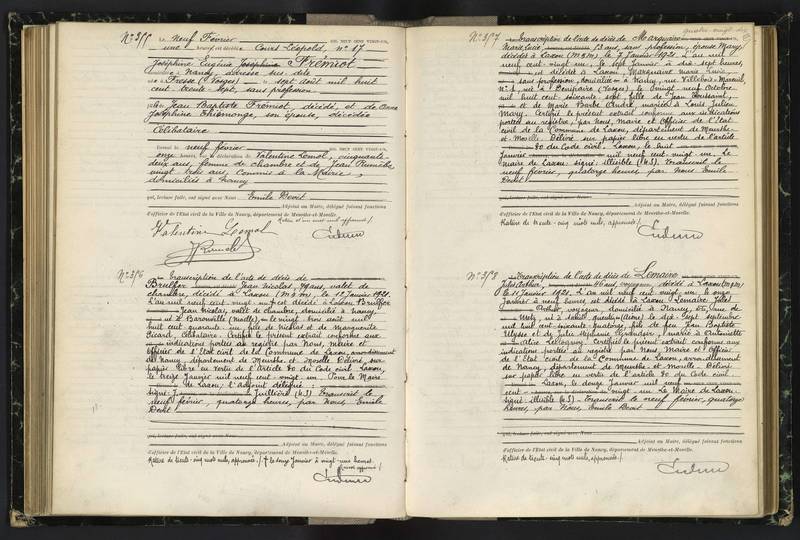 N° 375
Le Neuf Février mil neuf cent vingt-un,
une heure est décédée Cours Léopold, n° 17
Joséphine Eugénie Frémiot
à Nancy, adresse sus dite
née à Fresse (Vosges) le sept août mil huit
cent trente sept, sans profession
Jean Baptiste Frémiot, décédé, et de
Joséphine Thiémonge, son épouse, décédée
Célibataire
Dressé le neuf février
onze heures, sur la déclaration de Valentine Lomot, cinquante
deux ans, femme de chambre et de Jean
vingt trois ans, Commis à la Mairie,
domiciliés à Nancy
qui, lecture faite, ont signé avec Nous Emile Devit
Adjoint au Maire, délégué faisant fonctions
d'officier de l'Etat civil de la Ville de Nancy, département de Meurthe-et-Moselle.
Valentine Lomot
N° 376
Transcription de l'acte de décès de
Brulfer Jean Nicolas, 79 ans, valet de
chambre, décédé à Laxou (M & M), le 12 Janvier 1921.
L'an mil neuf cent vingt-un est décédé à Laxou Brulfer
Jean Nicolas, valet de chambre, domicilié à Nancy,
né à Baronville (Moselle), le vingt-trois août mil
huit cent quarante-un fils de Nicolas et de Marguerite
Picard, Célibataire. Certifié le présent extrait conforme aux
indications portées au registre par Nous, Maire et
Officier de l'Etat civil de la Commune de Laxou, arrondissement
de Nancy, département de Meurthe et Moselle. Délivré sur
papier libre en vertu de l'article 80 du Code civil. Laxou,
le treize Janvier mil neuf cent vingt-un. Pour le Maire
de Laxou: l'adjoint délégué:
signé: J. Juillière (LS) Transcrit le
neuf février, quatorze heures, par Nous, Emile
Devit
qui, lecture faite, ont signé avec Nous
Adjoint au Maire, délégué faisant fonctions
d'officier de l'Etat civil de la Ville de Nancy, département de Meurthe-et-Moselle.
Rature de trente-cinq mots nuls, approuvée./. † le douze Janvier à vingt-une heures.
N° 377
Transcription de l'acte de décès de Marquaire
Marie Lucie, 53 ans, sans profession, épouse Mary,
décédée à Laxou (M & M), le 7 Janvier 1921. L'an mil
neuf cent vingt-un, le sept Janvier à dix-sept heures,
est décédée à Laxou, Marquaire Marie Lucie,
sans profession, domiciliée à Nancy, rue Villebois-Mareuil,
N° 1, née à Bonipaire (Vosges), le vingt neuf octobre
mil huit cent soixante sept, fille de Jean Toussaint,
et de Marie Barbe André, mariée à Louis Julien
Mary. Certifié le présent extrait conforme aux indications
portées au registre, par Nous, Maire et Officier de l'Etat
civil de la Commune de Laxou, département de Meurthe
et Moselle. Délivré sur papier libre en vertu de l'article
80 du Code civil. Laxou, le huit
Janvier mil neuf cent vingt-un. Le
maire de Laxou: signé: illisible (LS). Transcrit le
neuf février, quatorze heures par Nous Emile
Devit
qui, lecture faite, ont signé avec Nous
Adjoint au Maire, délégué faisant fonctions
d'officier de l'Etat civil de la Ville de Nancy, département de Meurthe-et-Moselle.
Rature de trente-cinq mots nuls, approuvée./.
N° 378
Transcription de l'acte de décès de Lemaire
Jules Arthur, 46 ans, voyageur, décédé à Laxou (M & M)
le 11 Janvier 1921. L'an mil neuf cent vingt-un, le onze
Janvier à neuf heures, est décédé à Laxou Lemaire Jules
Arthur, voyageur, domicilié à Nancy, rue de
Metz, né à Saint Quentin (Aisne) le dix-sept septembre
mil huit cent soixante quatorze, fils de feu Jean Baptiste
Ulysse et de Julie Stéphanie, marié à Antoinette
Alice. Certifié le présent extrait conforme aux
indications portées au registre par Nous, Maire et Officier
de l'Etat civil de la Commune de Laxou, arrondissement
de Nancy, département de Meurthe-et-Moselle. Délivré
sur papier libre en vertu de l'article 80 du Code civil
Laxou, le douze Janvier mil neuf
cent vingt-un. Le Maire de Laxou:
signé: illisible (LS). Transcrit le neuf février, quatorze
heures, par Nous, Emile Devit
qui, lecture faite, ont signé avec Nous
Adjoint au Maire, délégué faisant fonctions
d'officier de l'Etat civil de la Ville de Nancy, département de Meurthe-et-Moselle.
Rature de trente-cinq mots nuls, approuvée./.